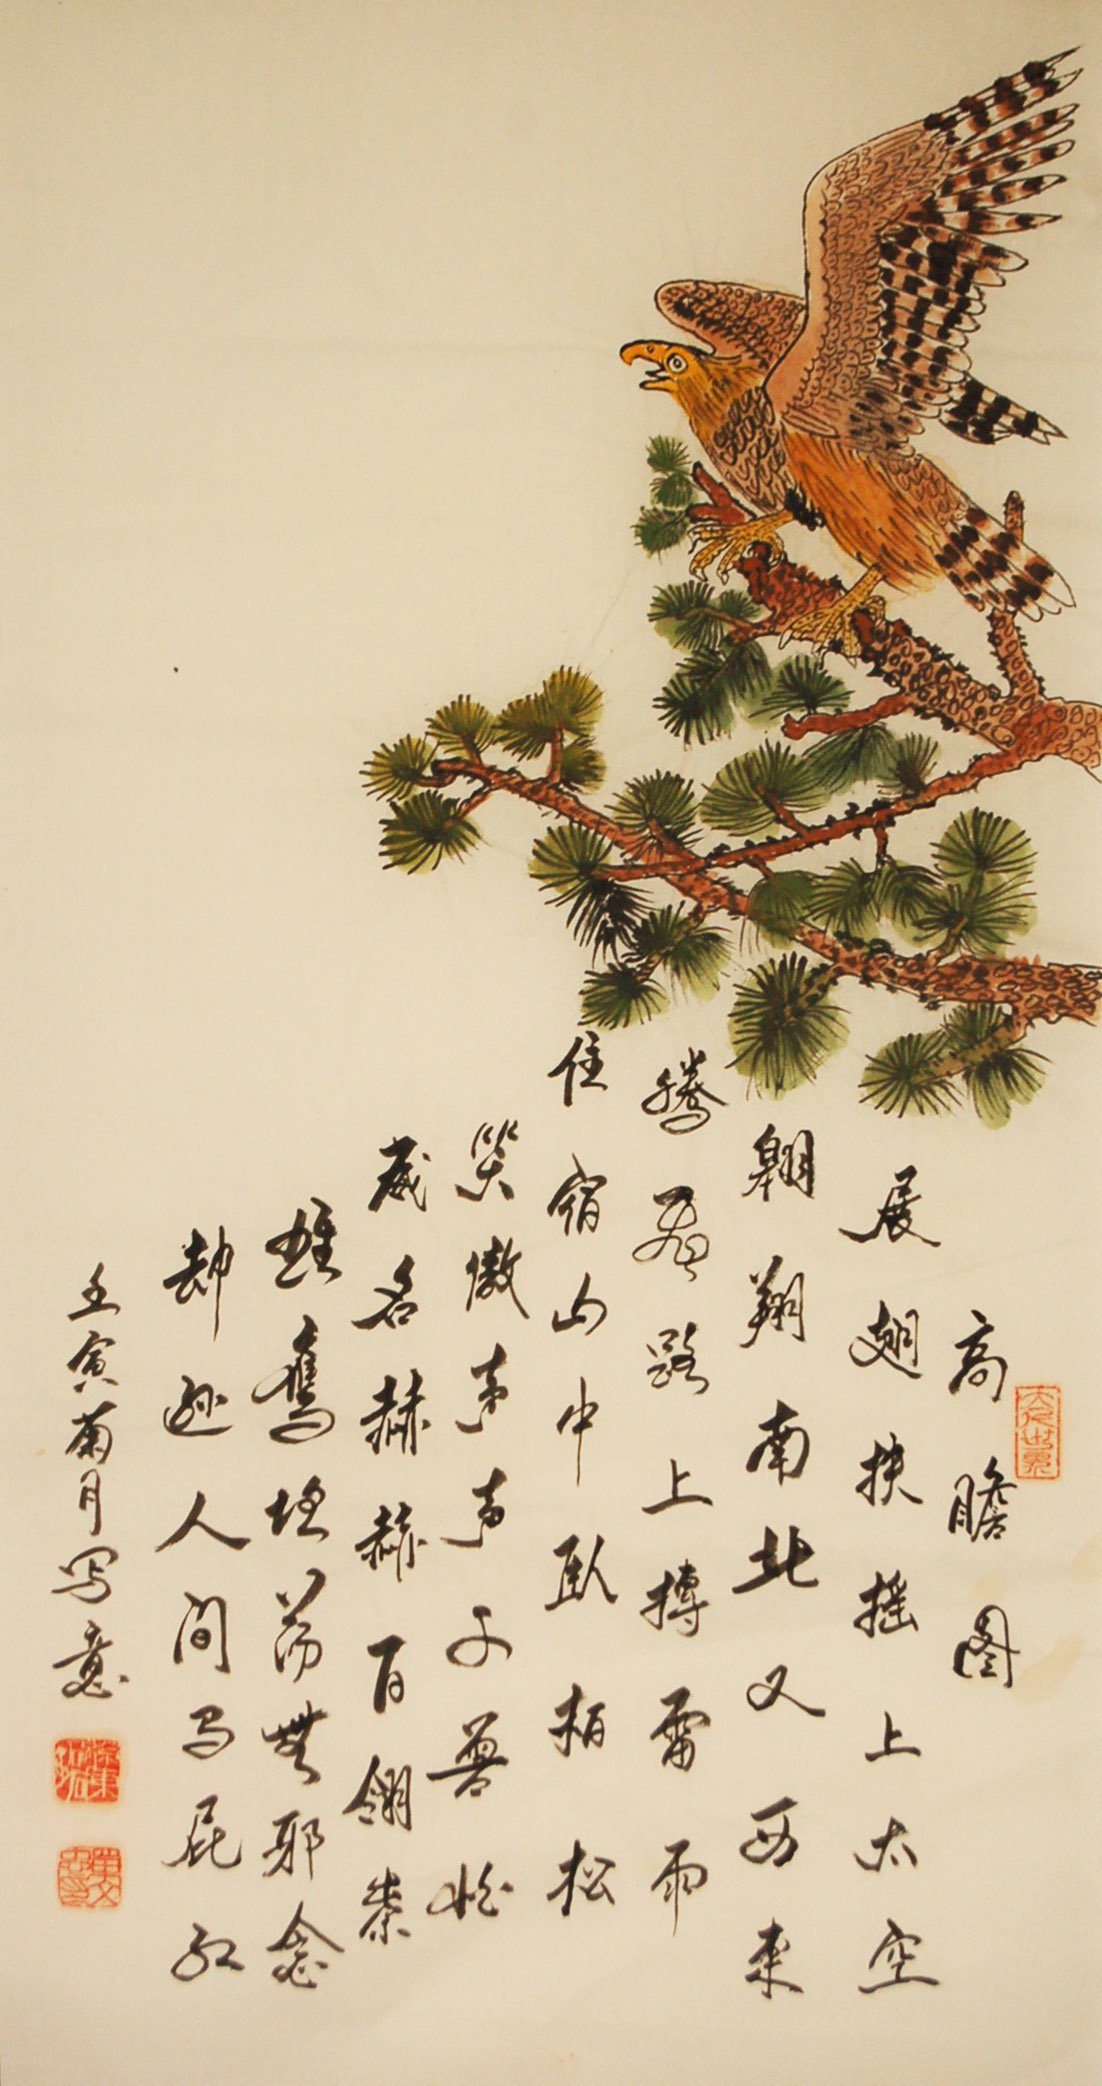 高瞻图
展翅扶摇上太空
翱翔南北又西東
腾雲路上搏雷雨
住宿山中卧柏松
笑傲声声兽怕
威名赫赫百翎崇
雄鹰坦荡無邪念
却逊人间马屁红
壬寅菊月写意